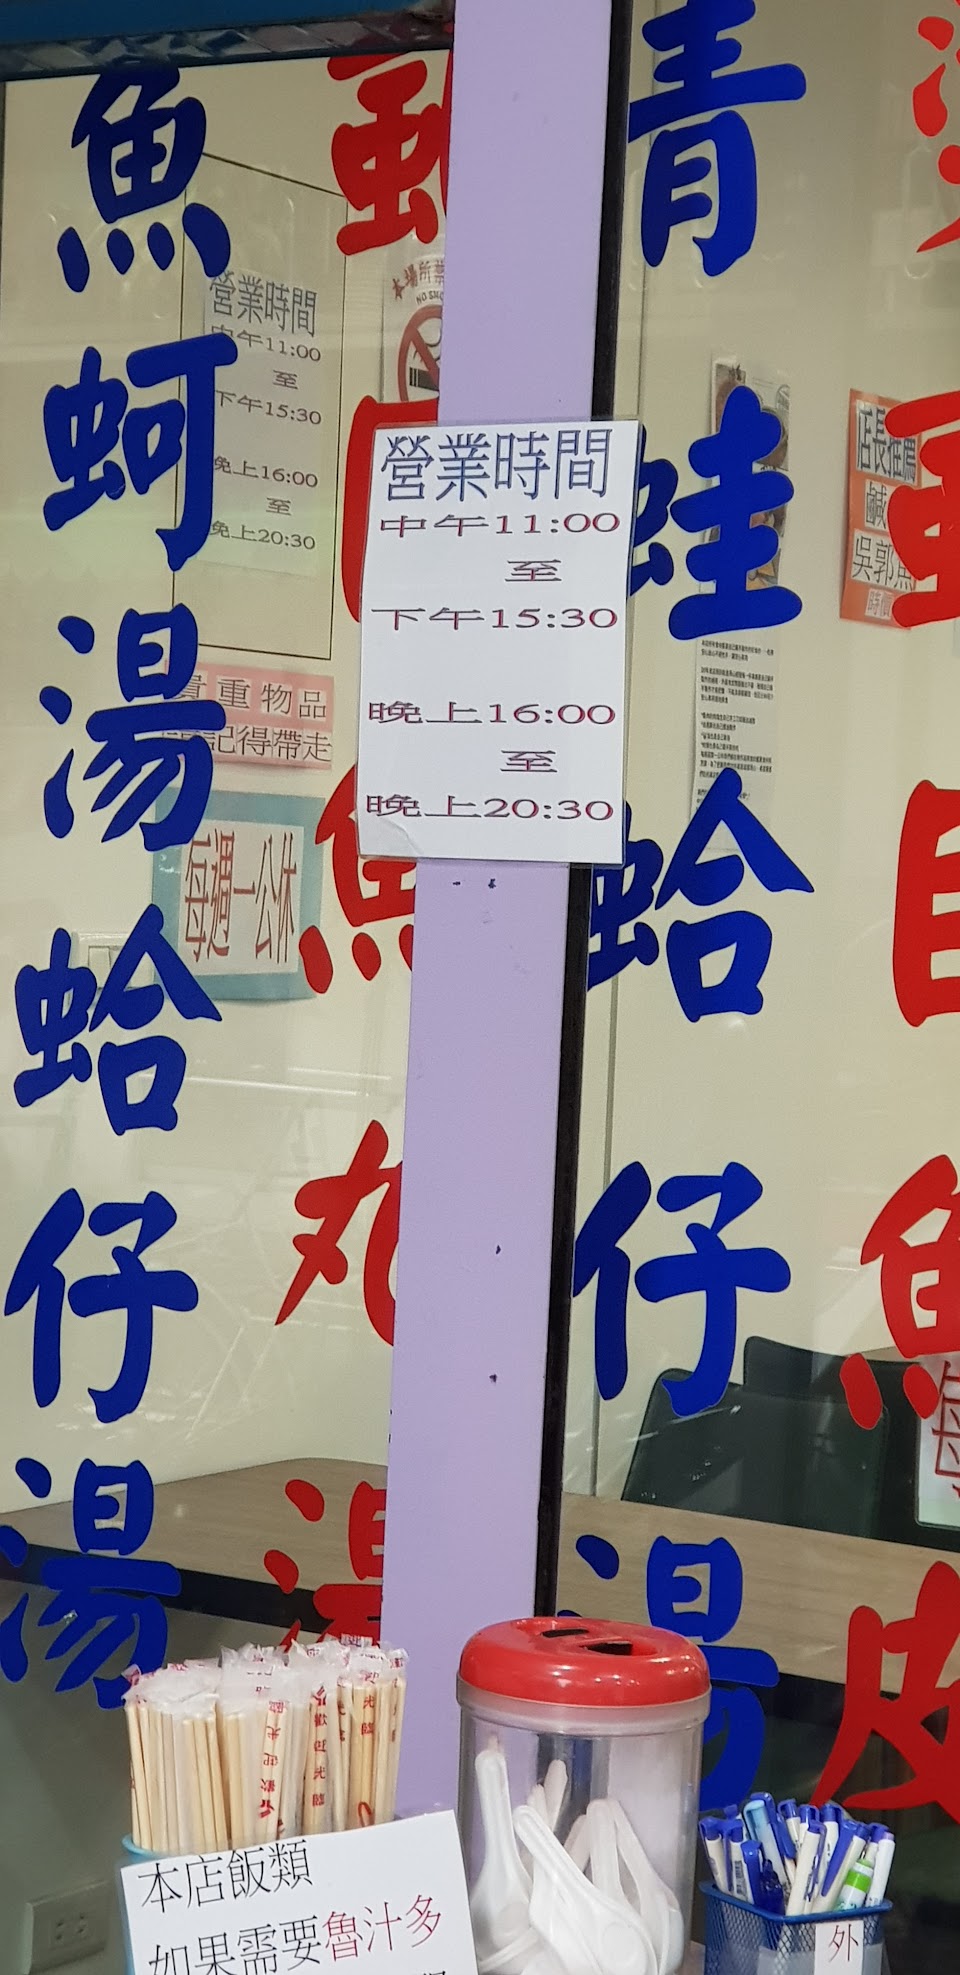 營業時間
中午11:00
至
下午15:30
晚上16:00
至
晚上20:30
魚蚵湯蛤仔湯
魚丸湯
青蛙蛤仔湯
目魚皮
營業時間
中午11:00
至
下午15:30
晚上16:00
至
晚上20:30
本場所禁
貴重物品
記得帶走
每週一公休
店長推薦
鹹
吳郭魚
時價
每
歡迎光臨
本店飯類
如果需要魯汁多
外